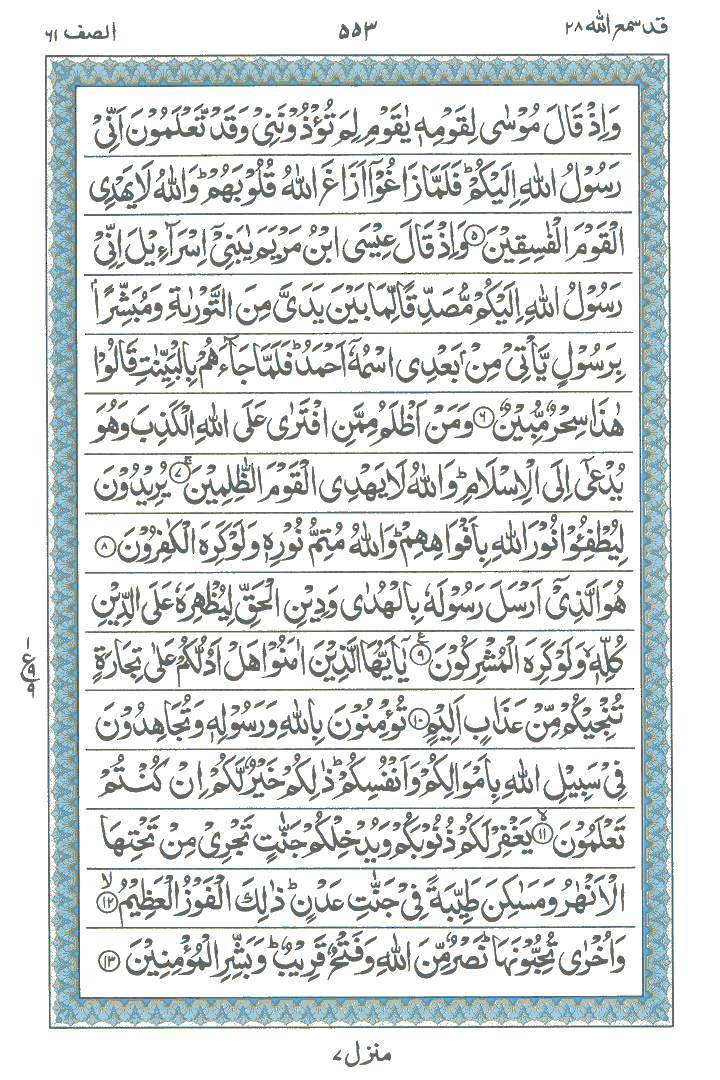 قد سمع الله ٢٨
٥٥٣
الصف ٦١
وَاِذْ قَالَ مُوْسٰى لِقَوْمِهٖ يٰقَوْمِ لِمَ تُؤْذُوْنَنِيْ وَقَدْ تَّعْلَمُوْنَ اَنِّيْ
رَسُوْلُ اللّٰهِ اِلَيْكُمْ ؕ فَلَمَّا زَاغُوْۤا اَزَاغَ اللّٰهُ قُلُوْبَهُمْ ؕ وَاللّٰهُ لَا يَهْدِي
الْقَوْمَ الْفٰسِقِيْنَ ۵ وَاِذْ قَالَ عِيْسَى ابْنُ مَرْيَمَ يٰبَنِيْۤ اِسْرَآءِيْلَ اِنِّيْ
رَسُوْلُ اللّٰهِ اِلَيْكُمْ مُّصَدِّقًا لِّمَا بَيْنَ يَدَيَّ مِنَ التَّوْرٰىةِ وَمُبَشِّرًاۢ
بِرَسُوْلٍ يَّاْتِيْ مِنْۢ بَعْدِي اسْمُهٗۤ اَحْمَدُ ؕ فَلَمَّا جَآءَهُمْ بِالْبَيِّنٰتِ قَالُوْا
هٰذَا سِحْرٌ مُّبِيْنٌ ۶ وَمَنْ اَظْلَمُ مِمَّنِ افْتَرٰى عَلَى اللّٰهِ الْكَذِبَ وَهُوَ
يُدْعٰۤى اِلَى الْاِسْلَامِ ؕ وَاللّٰهُ لَا يَهْدِي الْقَوْمَ الظّٰلِمِيْنَ ۷ يُرِيْدُوْنَ
لِيُطْفِـُٔوْا نُوْرَ اللّٰهِ بِاَفْوَاهِهِمْ ؕ وَاللّٰهُ مُتِمُّ نُوْرِهٖ وَلَوْ كَرِهَ الْكٰفِرُوْنَ ۸
هُوَ الَّذِيْۤ اَرْسَلَ رَسُوْلَهٗ بِالْهُدٰى وَدِيْنِ الْحَقِّ لِيُظْهِرَهٗ عَلَى الدِّيْنِ
كُلِّهٖ وَلَوْ كَرِهَ الْمُشْرِكُوْنَ ۹ يٰۤاَيُّهَا الَّذِيْنَ اٰمَنُوْا هَلْ اَدُلُّكُمْ عَلٰى تِجَارَةٍ
تُنْجِيْكُمْ مِّنْ عَذَابٍ اَلِيْمٍ ۱۰ تُؤْمِنُوْنَ بِاللّٰهِ وَرَسُوْلِهٖ وَتُجَاهِدُوْنَ
فِيْ سَبِيْلِ اللّٰهِ بِاَمْوَالِكُمْ وَاَنْفُسِكُمْ ؕ ذٰلِكُمْ خَيْرٌ لَّكُمْ اِنْ كُنْتُمْ
تَعْلَمُوْنَ ۱۱ يَغْفِرْ لَكُمْ ذُنُوْبَكُمْ وَيُدْخِلْكُمْ جَنّٰتٍ تَجْرِيْ مِنْ تَحْتِهَا
الْاَنْهٰرُ وَمَسٰكِنَ طَيِّبَةً فِيْ جَنّٰتِ عَدْنٍ ؕ ذٰلِكَ الْفَوْزُ الْعَظِيْمُ ۱۲
وَاُخْرٰى تُحِبُّوْنَهَا ؕ نَصْرٌ مِّنَ اللّٰهِ وَفَتْحٌ قَرِيْبٌ ؕ وَبَشِّرِ الْمُؤْمِنِيْنَ ۱۳
١
ع
٩
٩
منزل ٧